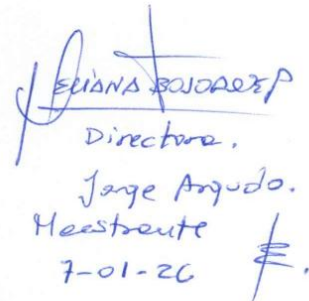 ELIANA BOJORQUEZ P
Directora.
Jorge Arqudo.
Maestrante
7-01-26